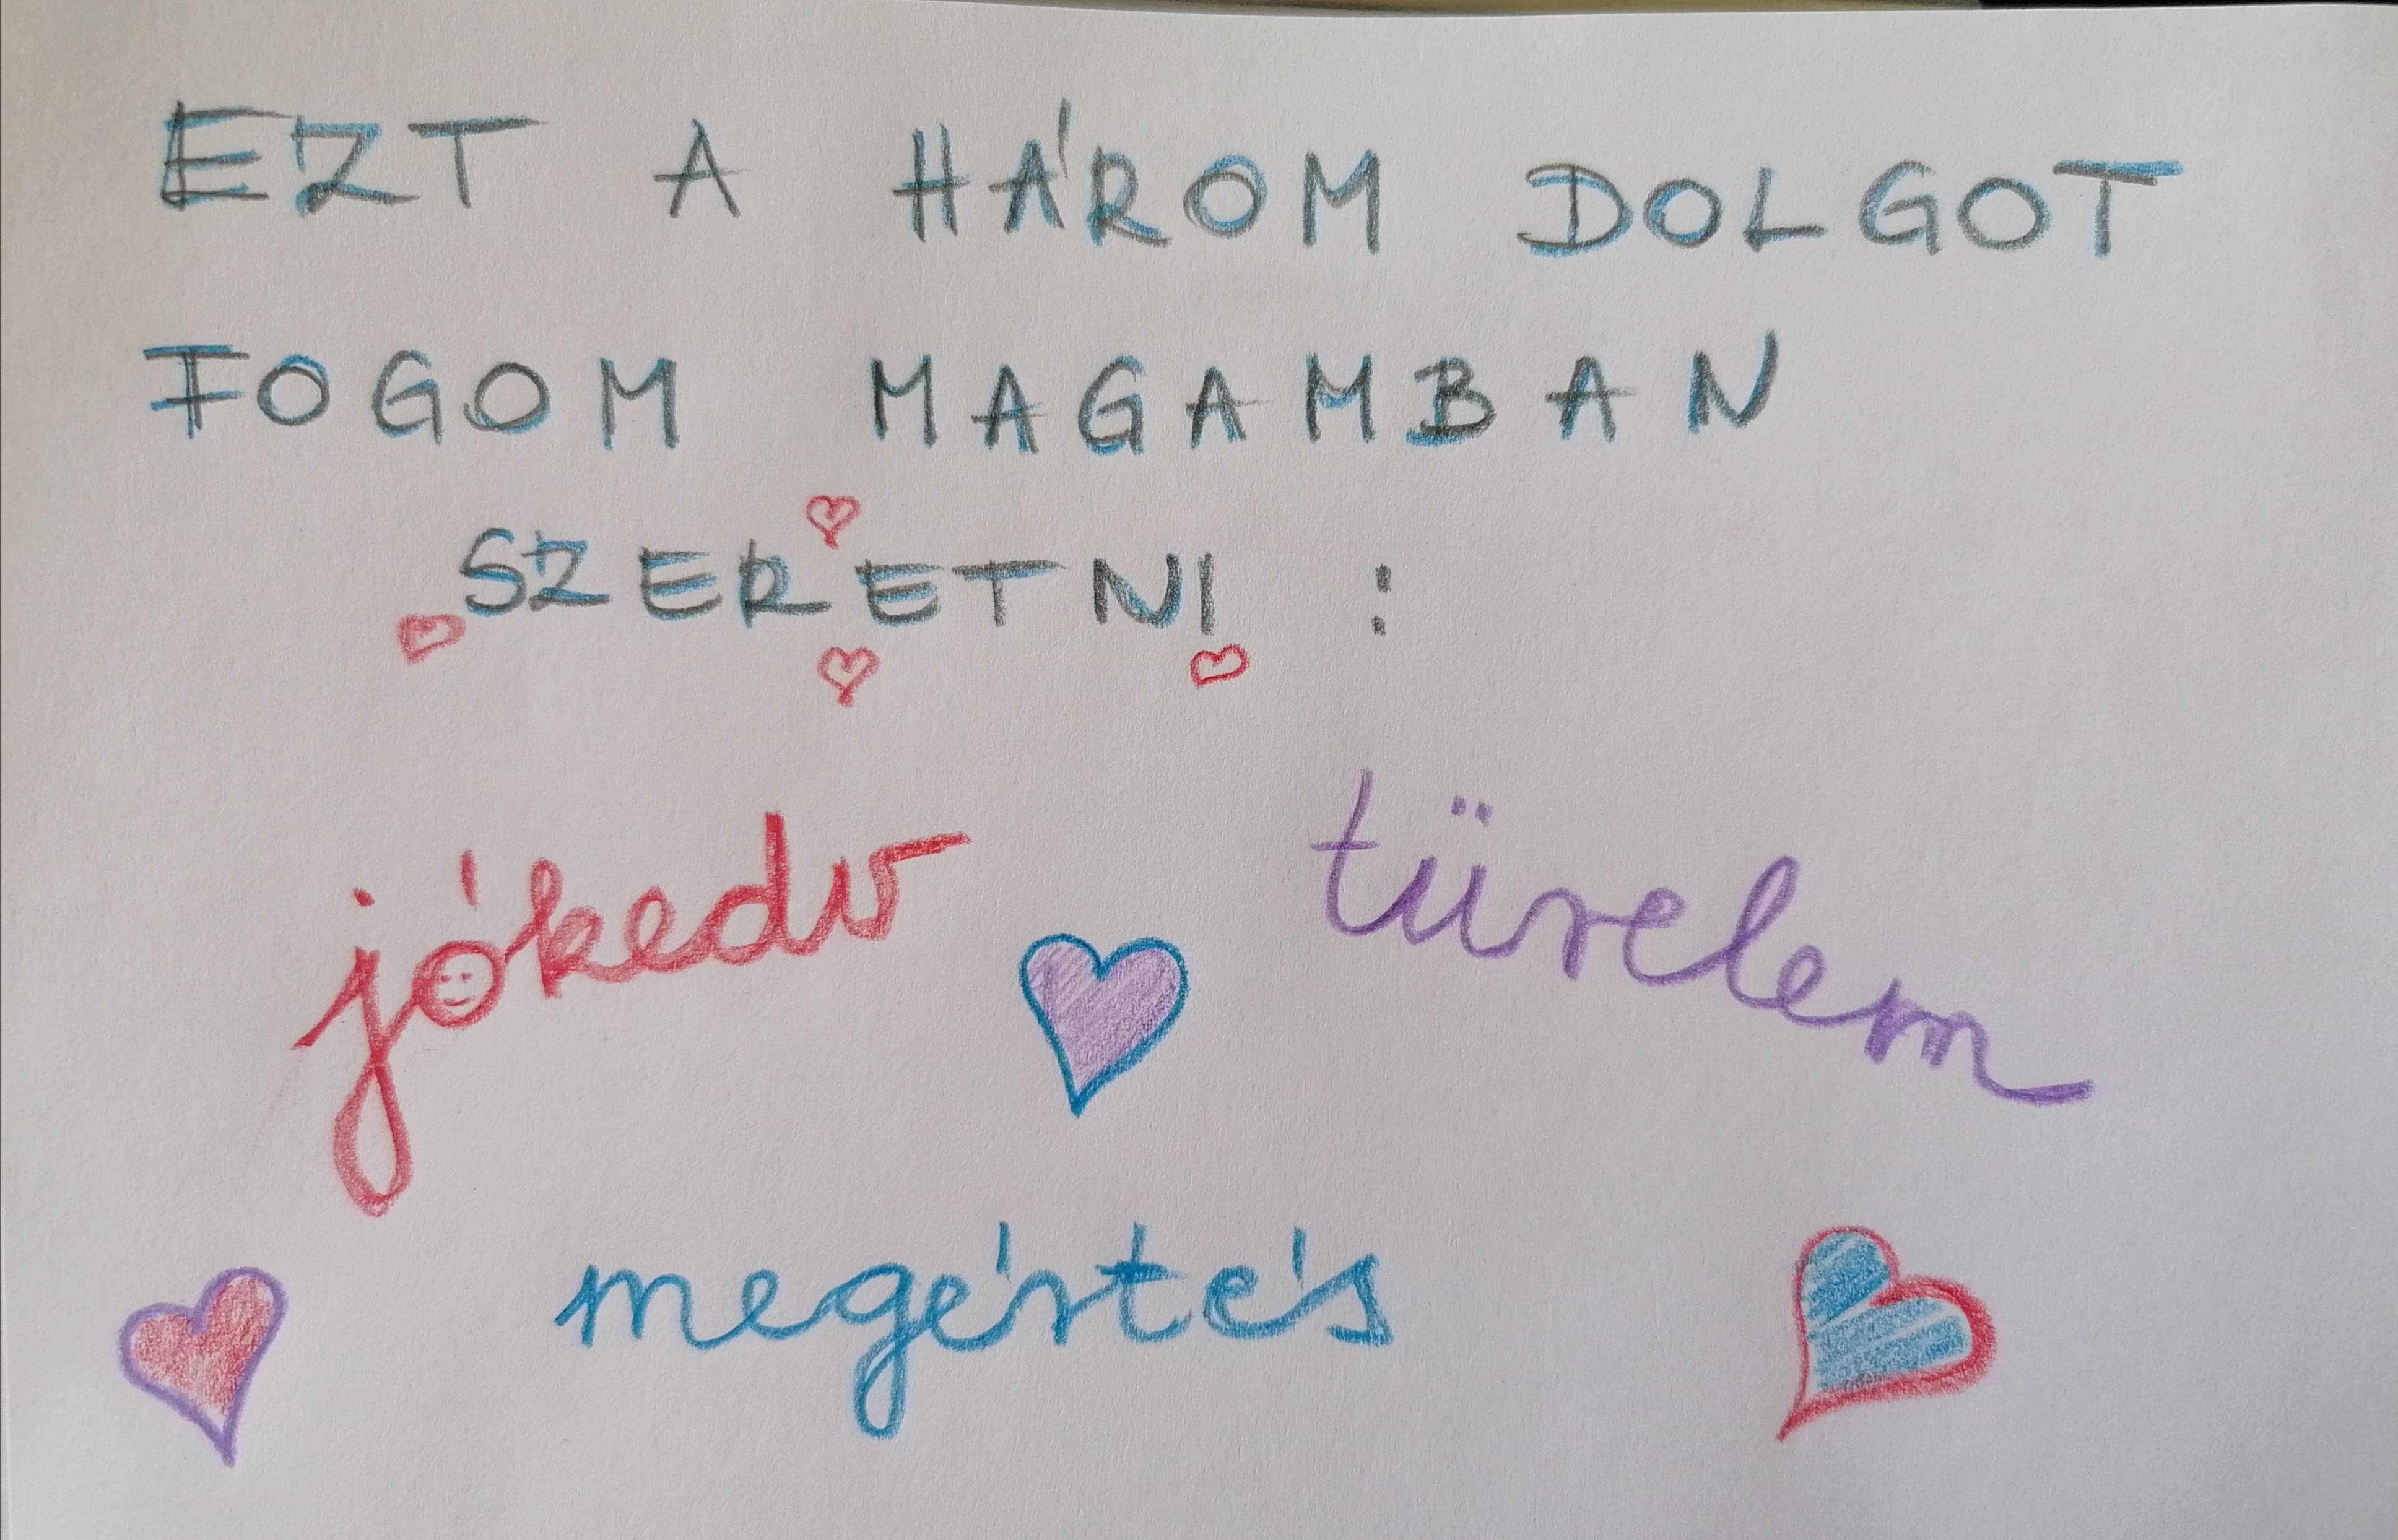 EZT A HÁROM DOLGOT
FOGOM MAGAMBAN
SZERETNI :
jókedv
türelem
megértés